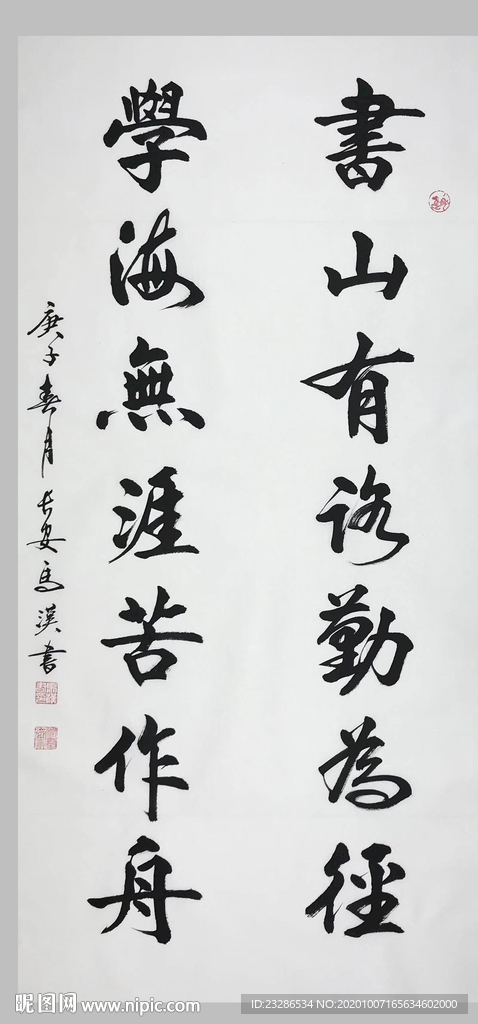 書山有路勤為徑
學海無涯苦作舟
庚子春月长安馬漢書
昵图网 www.nipic.com
ID:23286534 NO:20201007165634602000